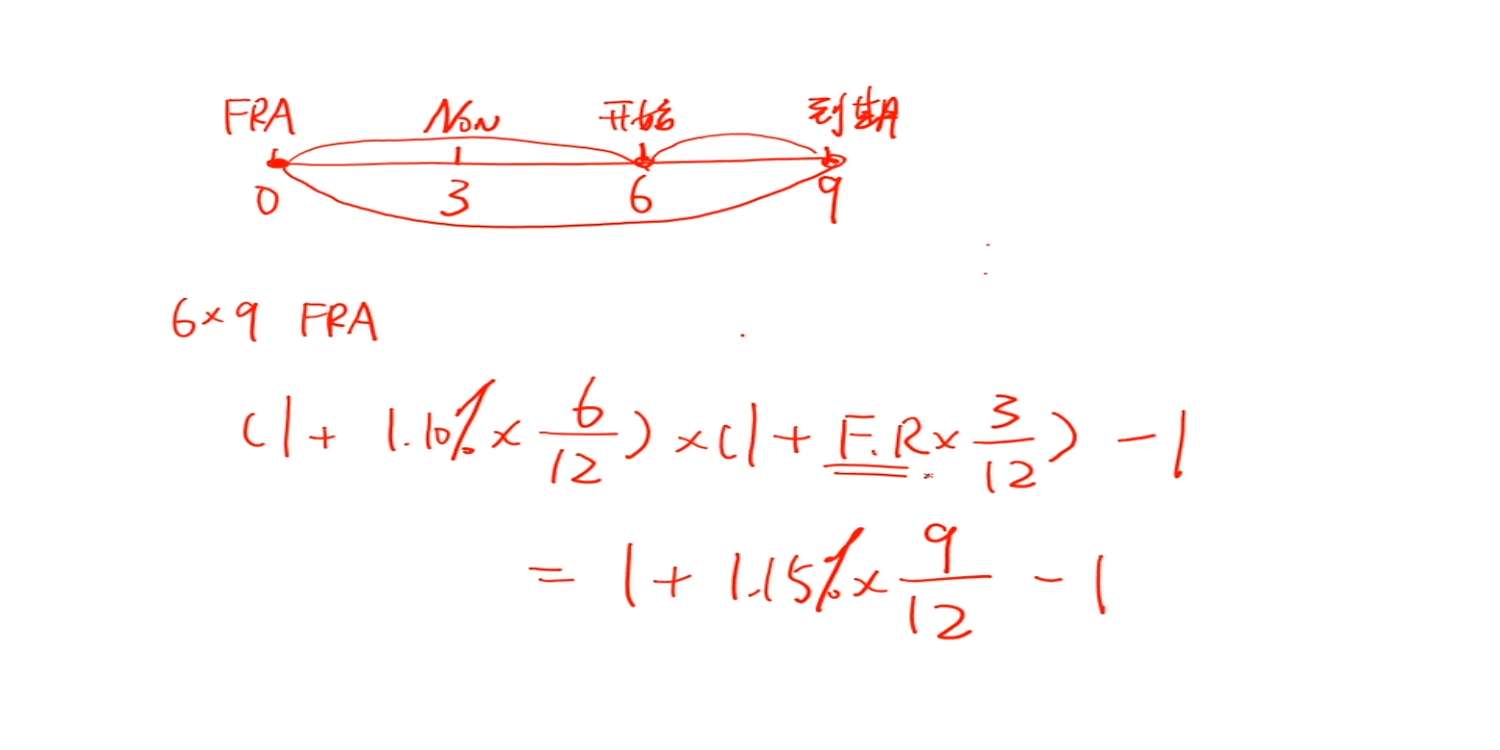 FRA Non 开始 到期
0 3 6 9
6×9 FRA
(1+1.10%×6/12)×(1+F.R×3/12)-1
=1+1.15%×9/12-1